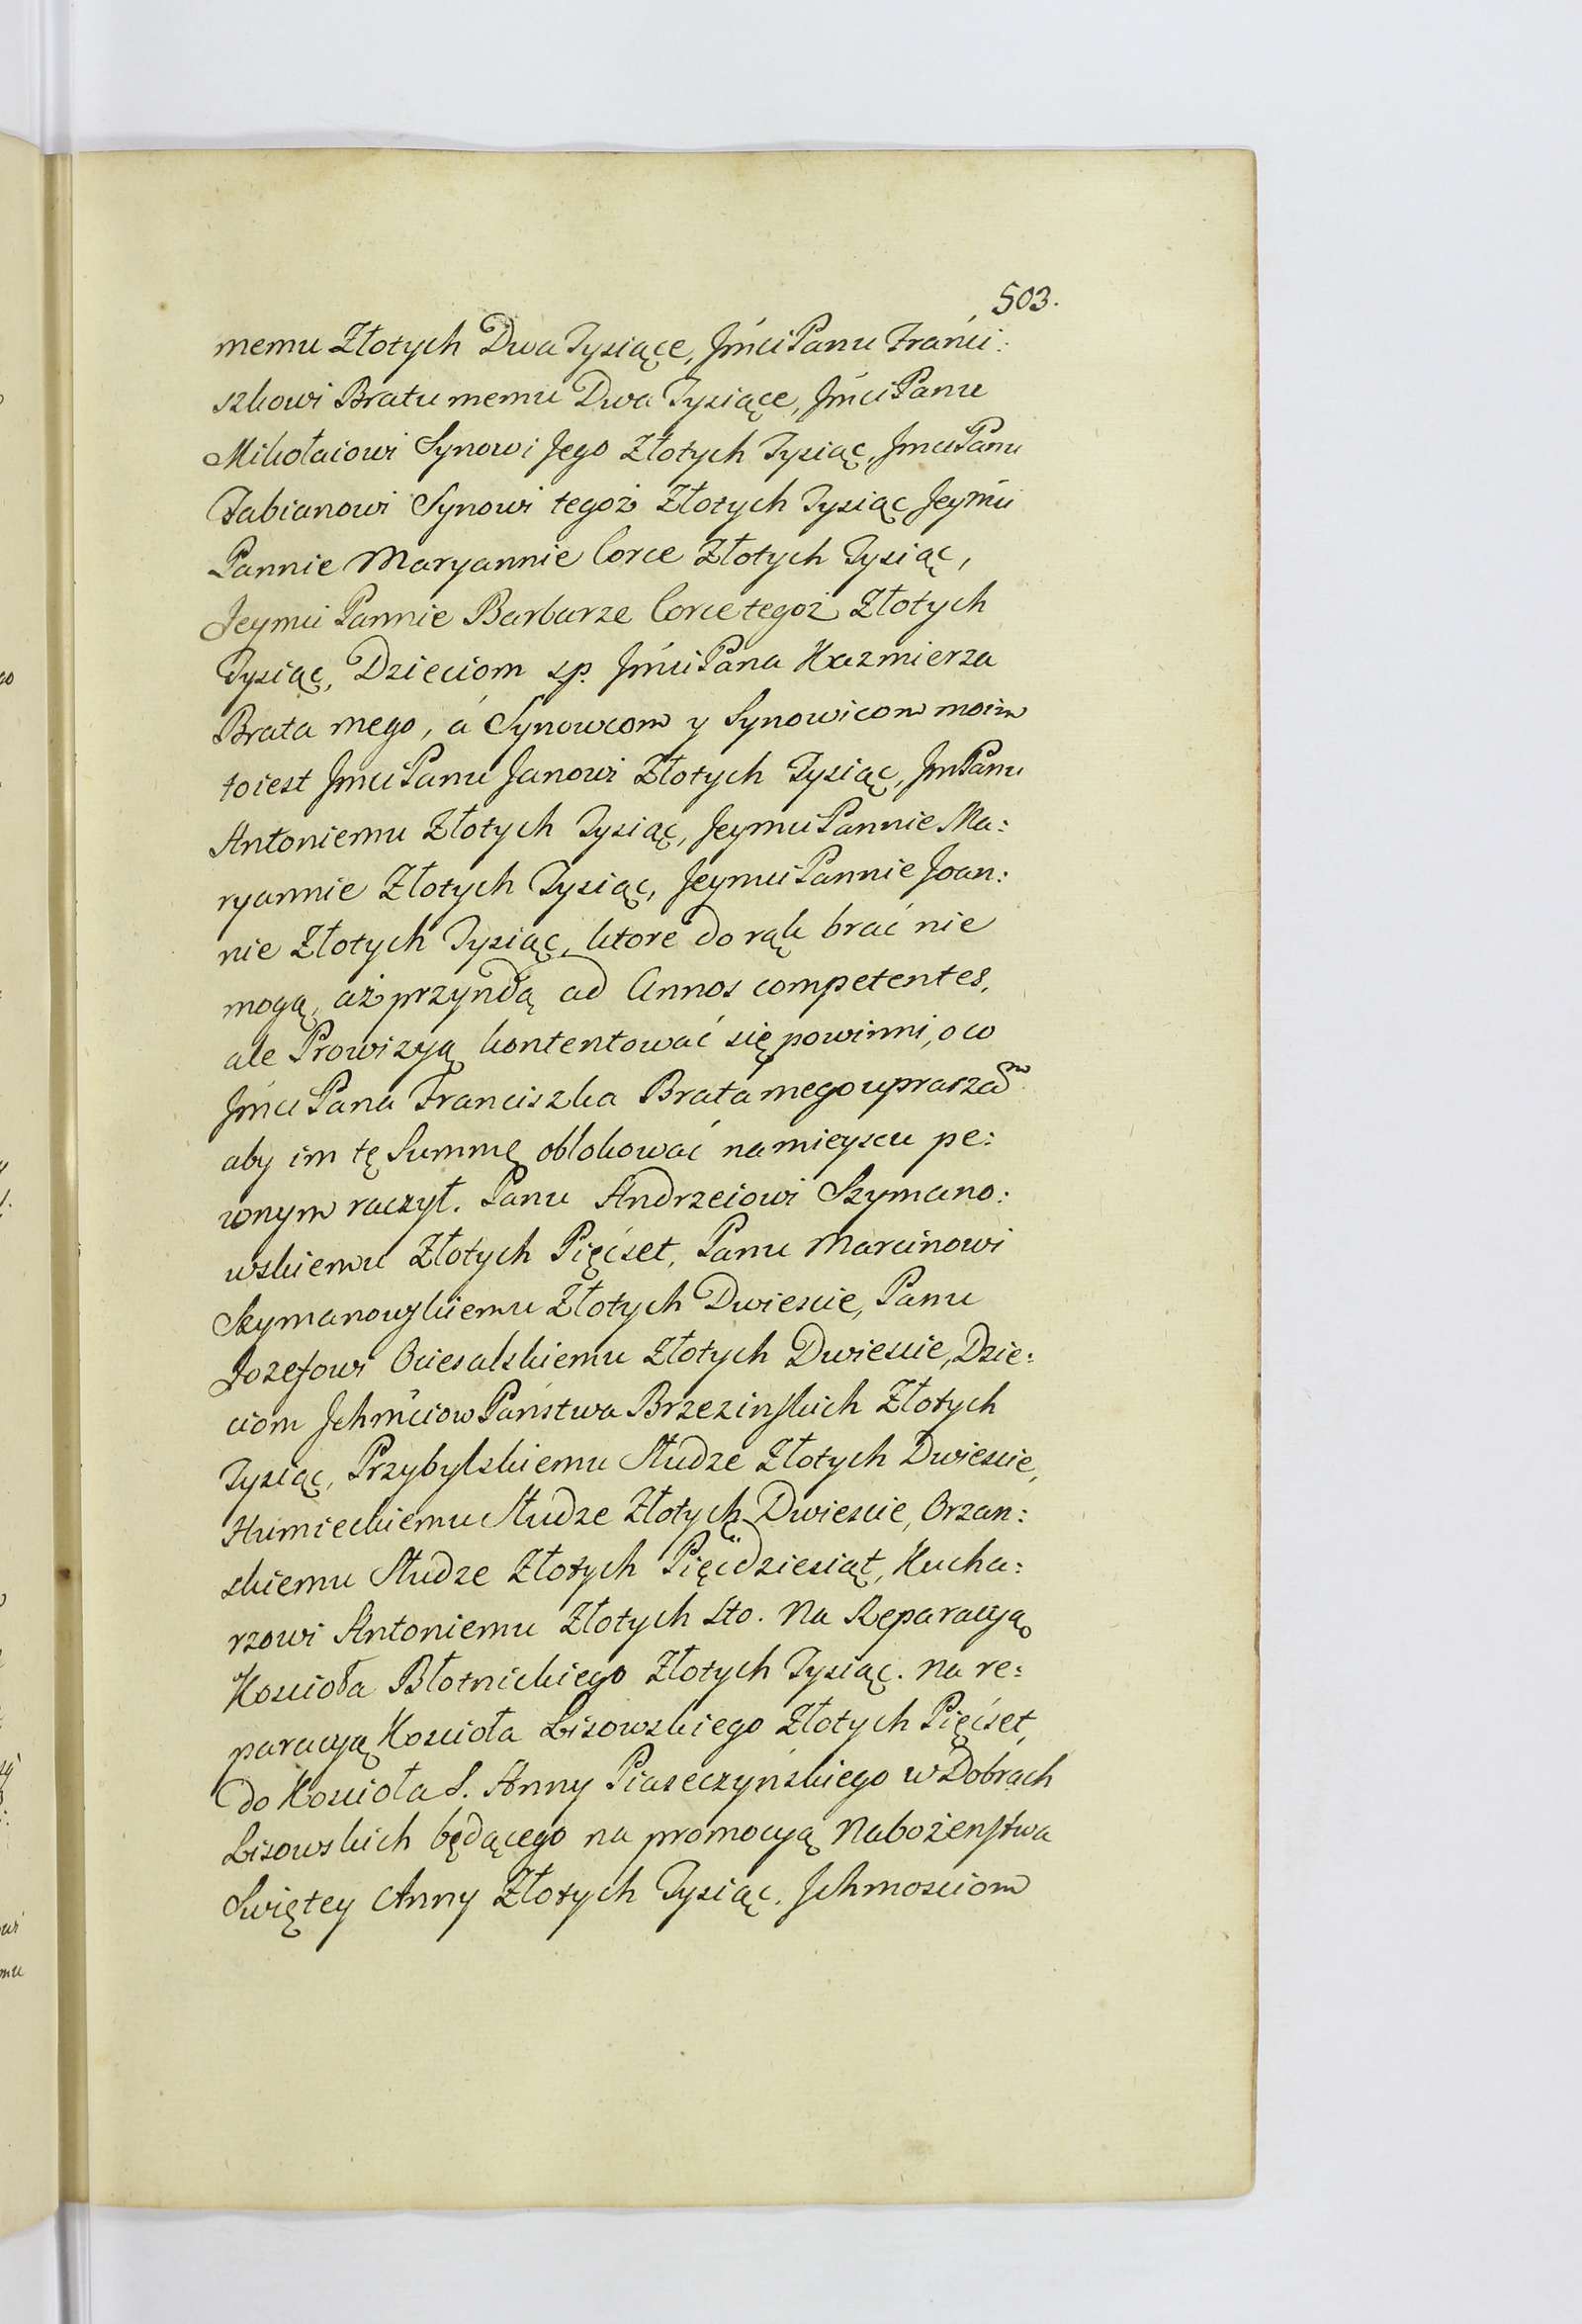 503.
memu Złotych Dwa Tysiące, Jmći Panu Franci:
szkowi Bratu memu Dwa Tysiące, Jmći Panu
Mikołaiowi Synowi Jego Złotych Tysiąc, Jmci Panu
Fabianowi Synowi tegoż Złotych Tysiąc Jeymći
Pannie Maryannie Corce Złotych Tysiąc,
Jeymci Pannie Barbarze Corce tegoż Złotych
Tysiąc, Dzieciom sp. Jmći Pana Kazmierza
Brata mego, á Synowcom y Synowicom moim
toiest Jmci Panu Janowi Złotych Tysiąc, Jm Panu
Antoniemu Złotych Tysiąc, Jeymci Pannie Ma:
ryannie Złotych Tysiąc, Jeymci Pannie Joan:
nie Złotych Tysiąc, ktore do rąk brać nie
mogą, aż przyndą ad Annos competentes,
ale Prowizyą kontentować się powinni, o co
Jmci Pana Franciszka Brata mego upraszam
aby im tę Summę oblokować na mieyscu pe:
wnym raczył. Panu Andrzeiowi Szymano:
wskiemu Złotych Pięćset, Panu Marcinowi
Szymanowskiemu Złotych Dwiescie, Panu
Jozefowi Ociesalskiemu Złotych Dwiescie, Dzie:
ciom Jchmciow Państwa Brzezinskich Złotych
Tysiąc, Przybylskiemu Słudze Złotych Dwiescie,
Humieckiemu Słudze Złotych Dwiescie, Orzan:
skiemu Słudze Złotych Pięćdziesiąt, Kucha:
rzowi Antoniemu Złotych Sto. Na Reparacyą
Koscioła Błotnickiego Złotych Tysiąc. na re:
paracyą Kosciola Lisowskiego Złotych Pięćset,
do Kosciola S. Anny Piaseczyńskiego w Dobrach
Lisowskich będącego na promocyą Nabożenstwa
Swiętey Anny Złotych Tysiąc. Jchmosciom